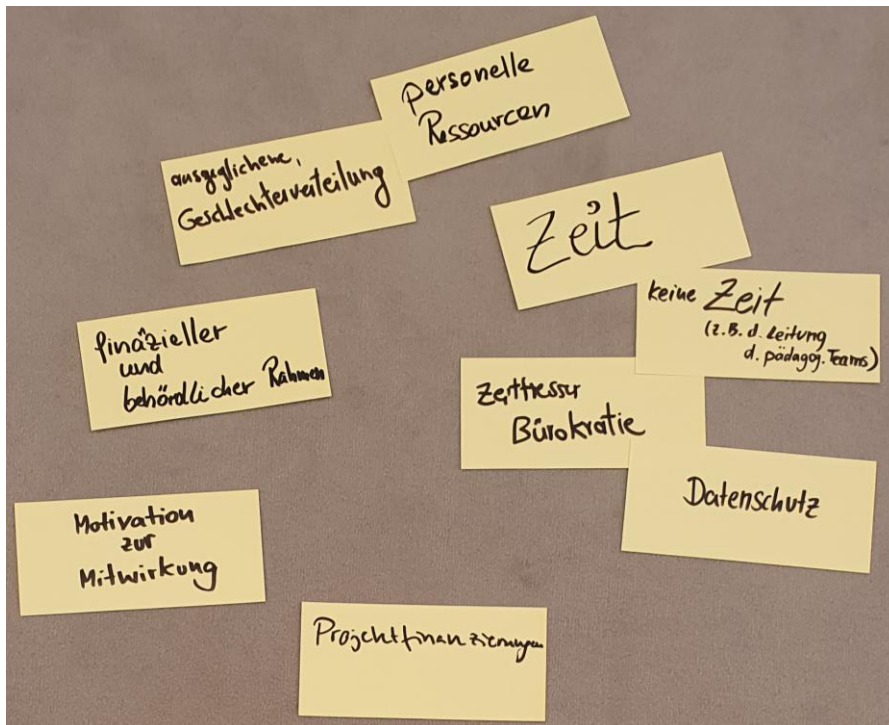 personelle
Ressourcen
ausgeglichene,
Geschlechterverteilung
Zeit
keine Zeit
(z.B. d. Leitung
d. pädagog. Teams)
finazieller
und
behördlicher Rahmen
Zeitfresser
Bürokratie
Datenschutz
Motivation
zur
Mitwirkung
Projektfinanzierungen